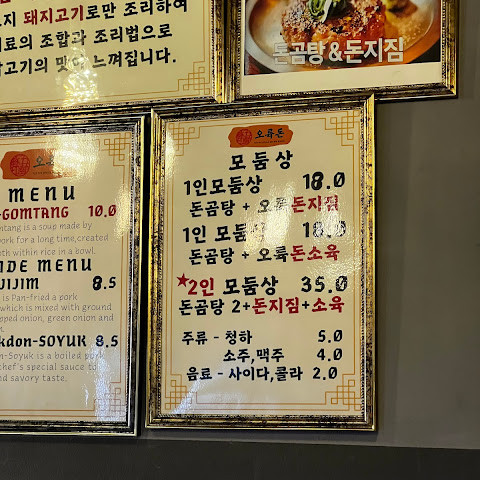 돼지고기로만 조리하여
료의 조합과 조리법으로
고기의 맛 느껴집니다.
돈곰탕&돈지짐
MENU
GOMTANG 10.0
tang is a soup made by
pork for a long time,created
th within rice in a bowl.
DE MENU
JIJIM 8.5
is Pan-fried a pork
which is mixed with ground
pped onion, green onion and
kdon-SOYUK 8.5
n-Soyuk is a boiled
chef's special sauce to
d savory taste.
오륙돈
모둠상
1인모둠상 18.0
돈곰탕 + 오륙돈지짐
1인 모둠상 18.0
돈곰탕 + 오륙돈소육
★2인 모둠상 35.0
돈곰탕 2+돈지짐+소육
주류 - 청하 5.0
소주,맥주 4.0
음료 - 사이다,콜라 2.0